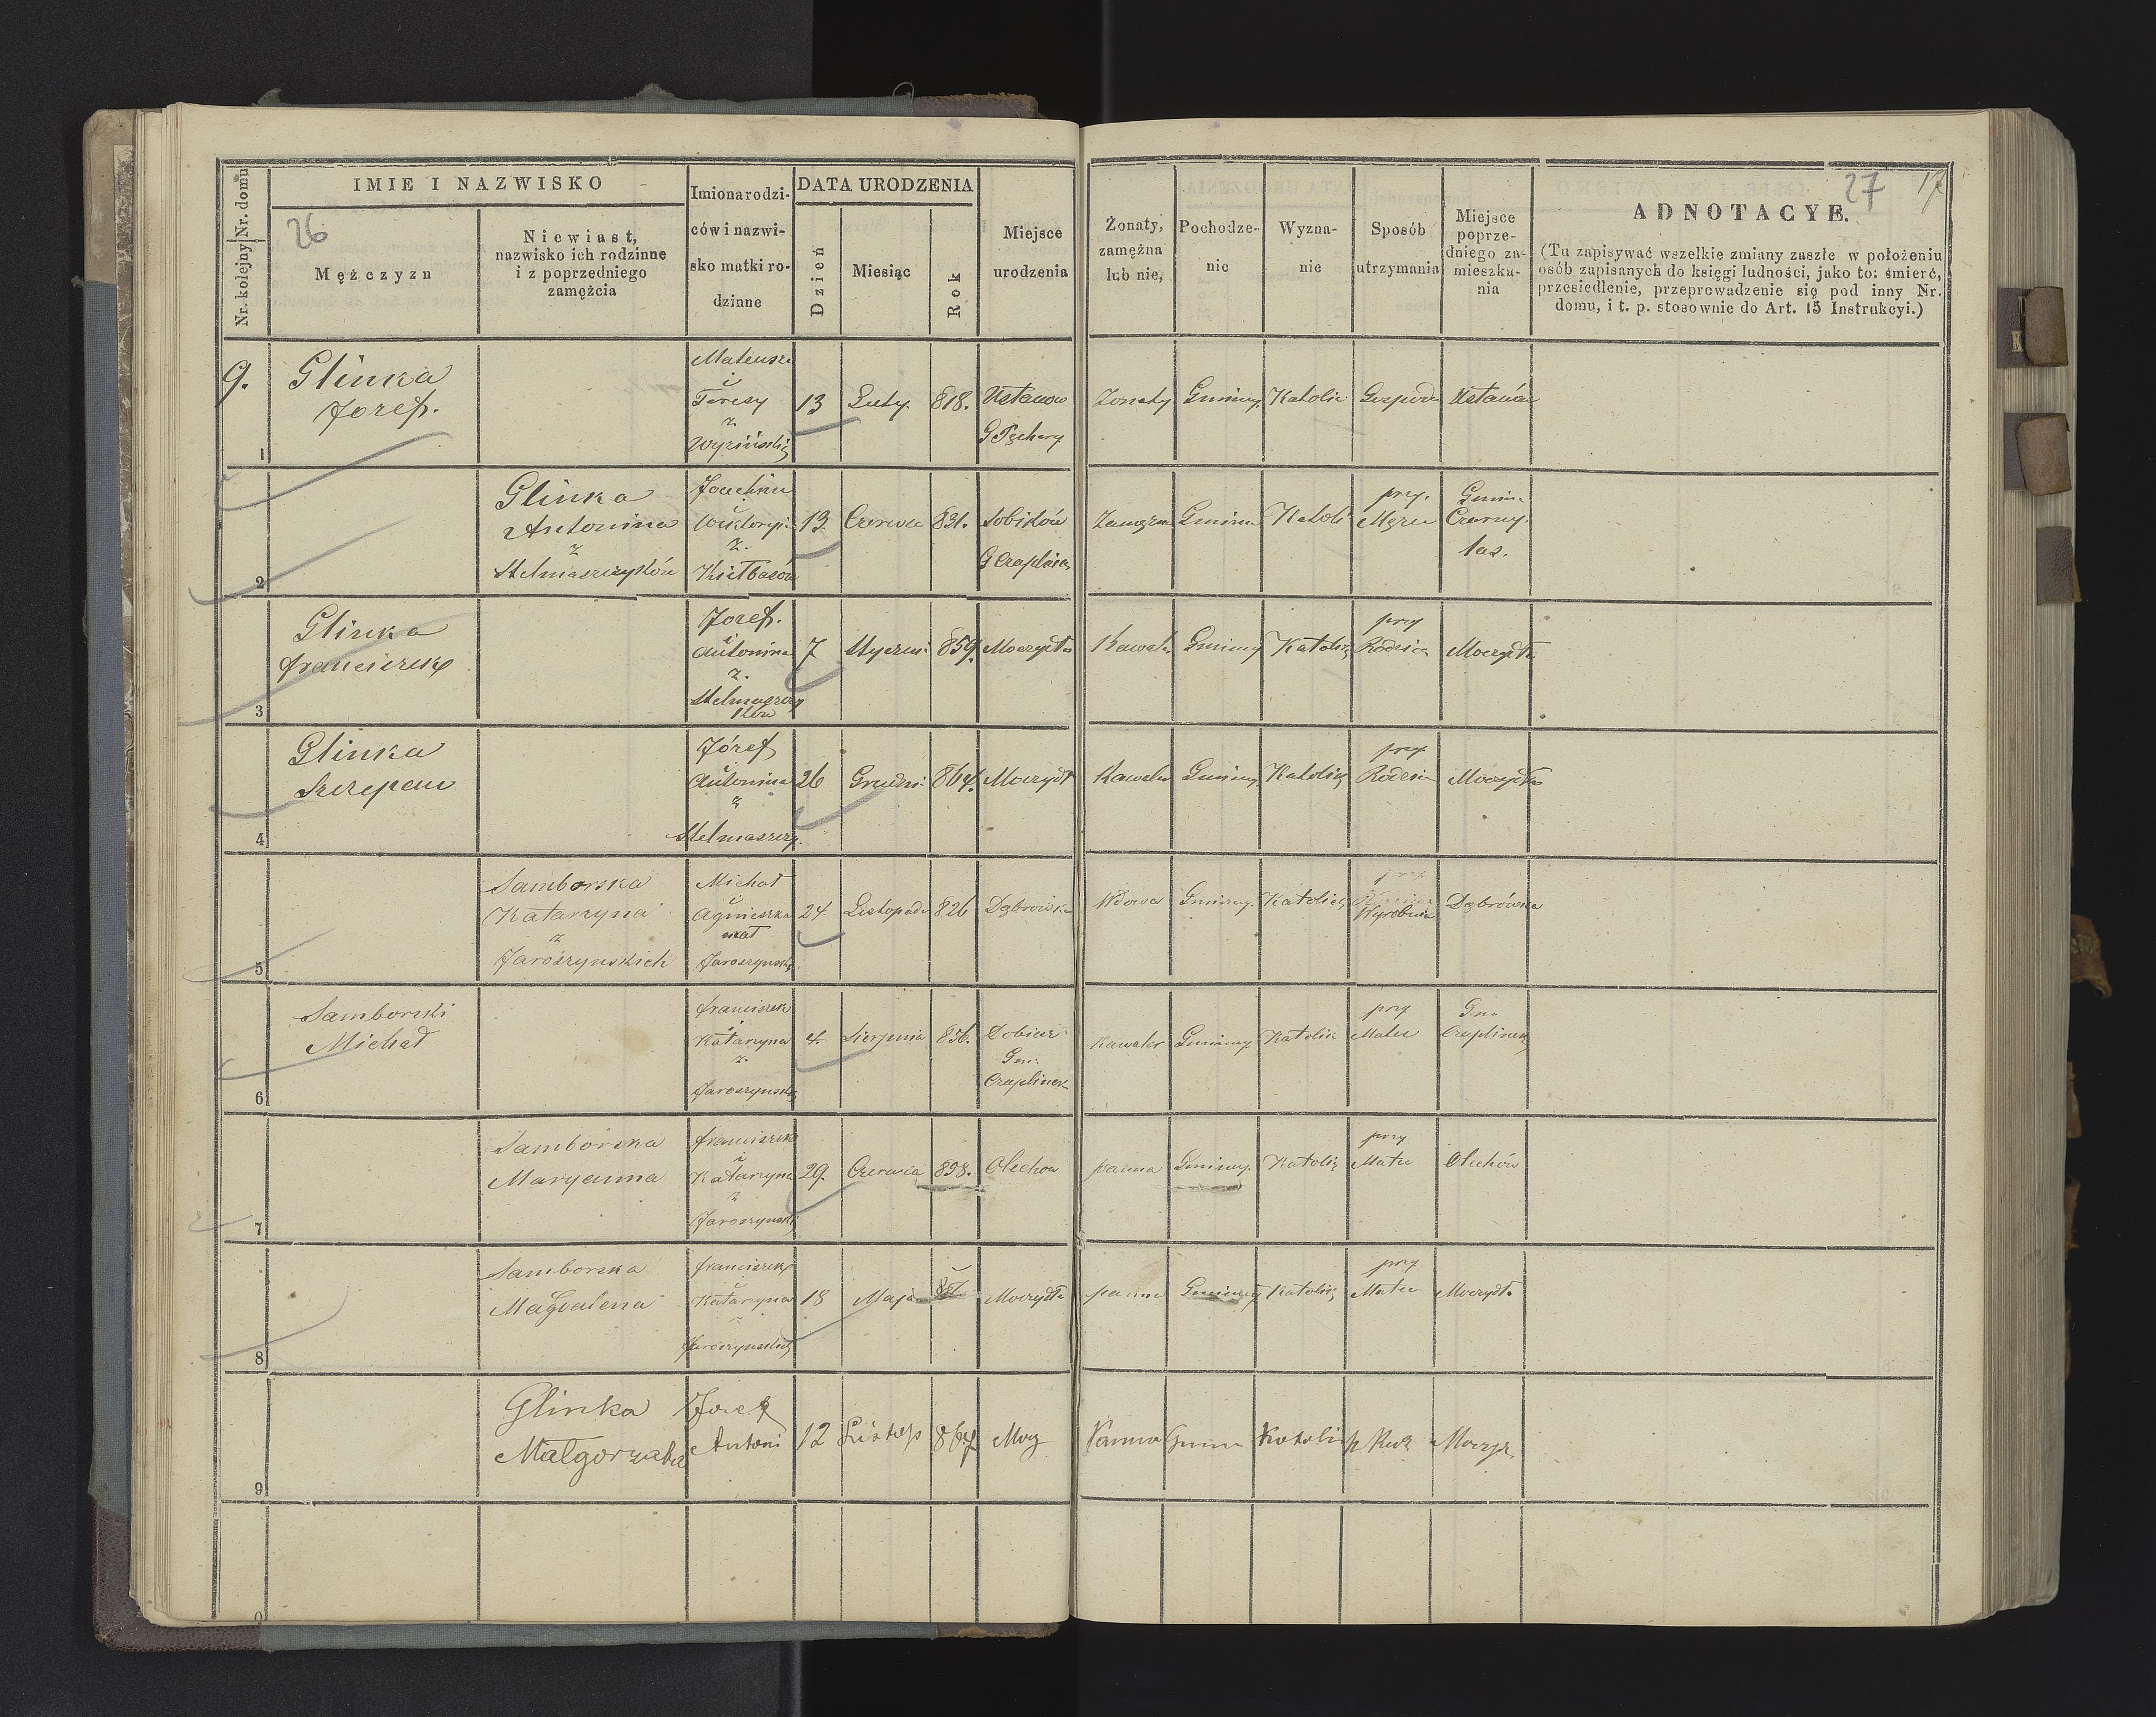 26
27
17
Nr. kolejny Nr. domu
IMIE I NAZWISKO
Mężczyzn
Niewiast,
nazwisko ich rodzinne
i z poprzedniego
zamężcia
Imiona rodzi-
ców i nazwi-
sko matki ro-
dzinne
DATA URODZENIA
Dzień
Miesiąc
Rok
Miejsce
urodzenia
Żonaty,
zamężna
lub nie,
Pochodze-
nie
Wyzna-
nie
Sposób
utrzymania
Miejsce
poprze-
dniego za-
mieszka-
nia
ADNOTACYE.
(Tu zapisywać wszelkie zmiany zaszłe w położeniu
osób zapisanych do księgi ludności, jako to: śmierć,
przesiedlenie, przeprowadzenie się pod inny Nr.
domu, i t. p. stosownie do Art. 15 Instrukcyi.)
9.
1
Glinka
Jozef.
Mateusz
i
Teresy
z
13
Luty.
818.
Ustanow
Zonaty
Gminny.
Katolic
Ustanów
2
Glinka
Antonina
z
Stelmaszczyków
i
z.
Kiełbasów
13.
Czerwca
831.
Sobików
Gmina
Katoli
przy.
Mężu
Gmin.
Czarny.
las.
3
Glinka
Franciszek
Jozef.
i
Antonina
z.
7
859.
Moczydło
Kawaler
Gminny
Katolic
przy
Rodzica
Moczydło
4
Glinka
Szczepan
Józef
Antonina
z
Stelmaszczy.
26
Grudni
864.
Moczydł
Kawaler
Gminny.
Katolic
przy
Rodzic
Moczydło
5
Samborska
Katarzyna
z
Jaroszynskich
Michał
i
Agnieszka
mał
Jaroszynsk
24.
Listopada
826
Dąbrowka
Wdowa
Gminny.
Katolic
Wyrobnia
Dąbrówka
6
Samborski
Michał
Franciszek
i
Katarzyna
z.
Jaroszynsk
4.
Sierpnia
856.
Gm:
Czaplinek
Kawaler
Gminny.
Katolic
przy
Matce
Gm.
Czaplinek
7
Samborska
Maryanna
Franciszek
i
Katarzyna
z
Jaroszynsk
29.
Czerwca
858.
Olechow
panna
Gminny.
Katolic
przy
Matce
Olechów
8
Samborska
Magdalena
Franciszek
i
Katarzyna
Jaroszynskich
18
Maja
Moczydło
panna
Gminny
Katolic
przy
Matce
Moczydło
9
Glinka
Małgorzata
Jozef
Antoni
12
Listop
867
Mocz
Panna
Gmin
Katoli
Moczyd